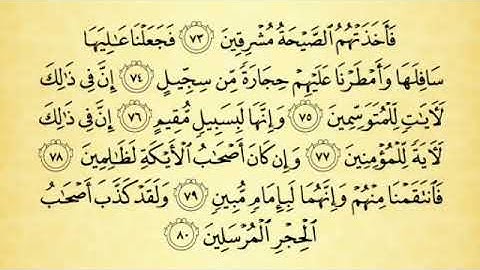 فَأَخَذَتۡهُمُ ٱلصَّيۡحَةُ مُشۡرِقِينَ ٧٣ فَجَعَلۡنَا عَٰلِيَهَا
سَافِلَهَا وَأَمۡطَرۡنَا عَلَيۡهِمۡ حِجَارَةٗ مِّن سِجِّيلٍ ٧٤ إِنَّ فِي ذَٰلِكَ
لَأٓيَٰتٖ لِّلۡمُتَوَسِّمِينَ ٧٥ وَإِنَّهَا لَبِسَبِيلٖ مُّقِيمٍ ٧٦ إِنَّ فِي ذَٰلِكَ
لَأٓيَةٗ لِّلۡمُؤۡمِنِينَ ٧٧ وَإِن كَانَ أَصۡحَٰبُ ٱلۡأَيۡكَةِ لَظَٰلِمِينَ ٧٨
فَٱنتَقَمۡنَا مِنۡهُمۡ وَإِنَّهُمَا لَبِإِمَامٖ مُّبِينٖ ٧٩ وَلَقَدۡ كَذَّبَ أَصۡحَٰبُ
ٱلۡحِجۡرِ ٱلۡمُرۡسَلِينَ ٨٠